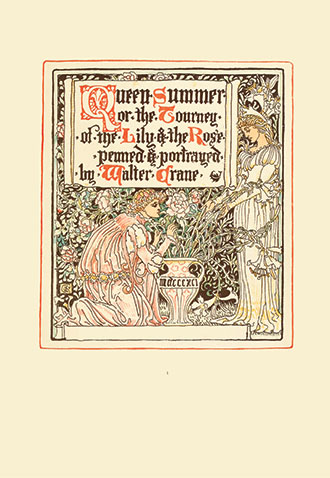 Queen · Summer
or · the · Tourney ·
· of · the · Lily · & · the · Rose ·
· penned · & · portrayed ·
by · Walter · Crane ·
MDCCCXCI